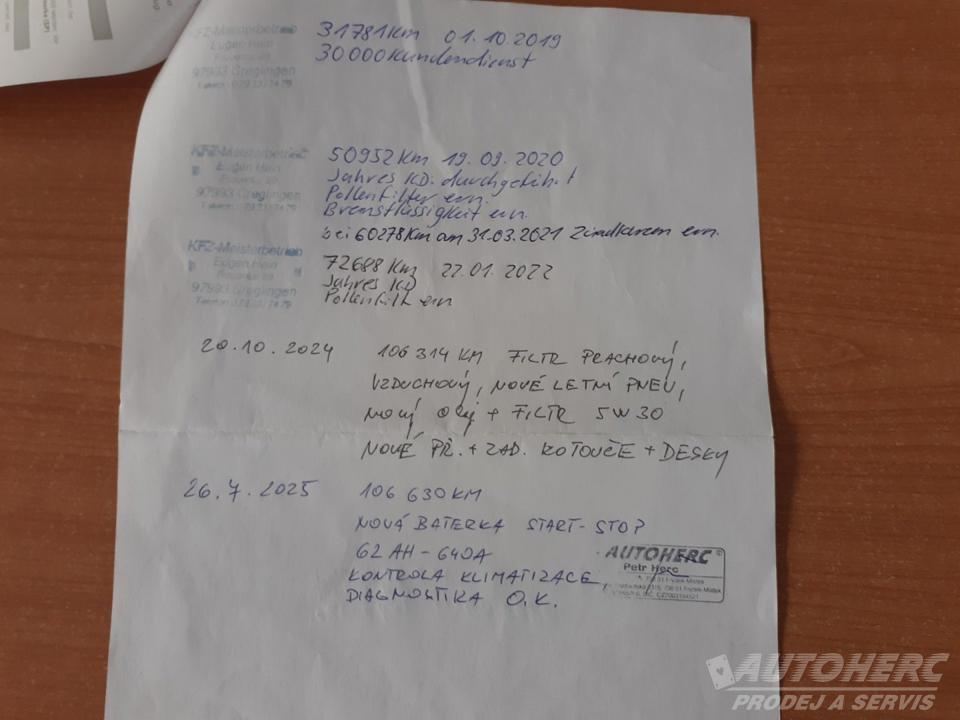 KFZ-Meisterbetrieb
Eugen Hein
97993 Creglingen
31781 Km 01.10.2019
30000 Kundendienst
KFZ-Meisterbetrieb
Eugen Hein
97993 Creglingen
50952 Km 19.09.2020
Jahres KD. durchgeführt
Pollenfilter ern.
Bremsflüssigkeit ern.
bei 60278 Km am 31.03.2021 ern.
KFZ-Meisterbetrieb
Eugen Hein
97993 Creglingen
72688 Km 22.01.2022
Jahres KD
Pollenfilt ern
20.10.2024 106 314 KM FILTR PRACHOVÝ,
VZDUCHOVÝ, NOVÉ LETNÍ PNEU,
NOVÝ OLEJ + FILTR 5W30
NOVÉ PŘ. + ZAD. KOTOUČE + DESKY
26.7.2025 106 630 KM
NOVÁ BATERKA START-STOP
62 AH - 640A
KONTROLA KLIMATIZACE
DIAGNOSTIKA O.K.
AUTOHERC
Petr Herc
AUTOHERC
PRODEJ A SERVIS